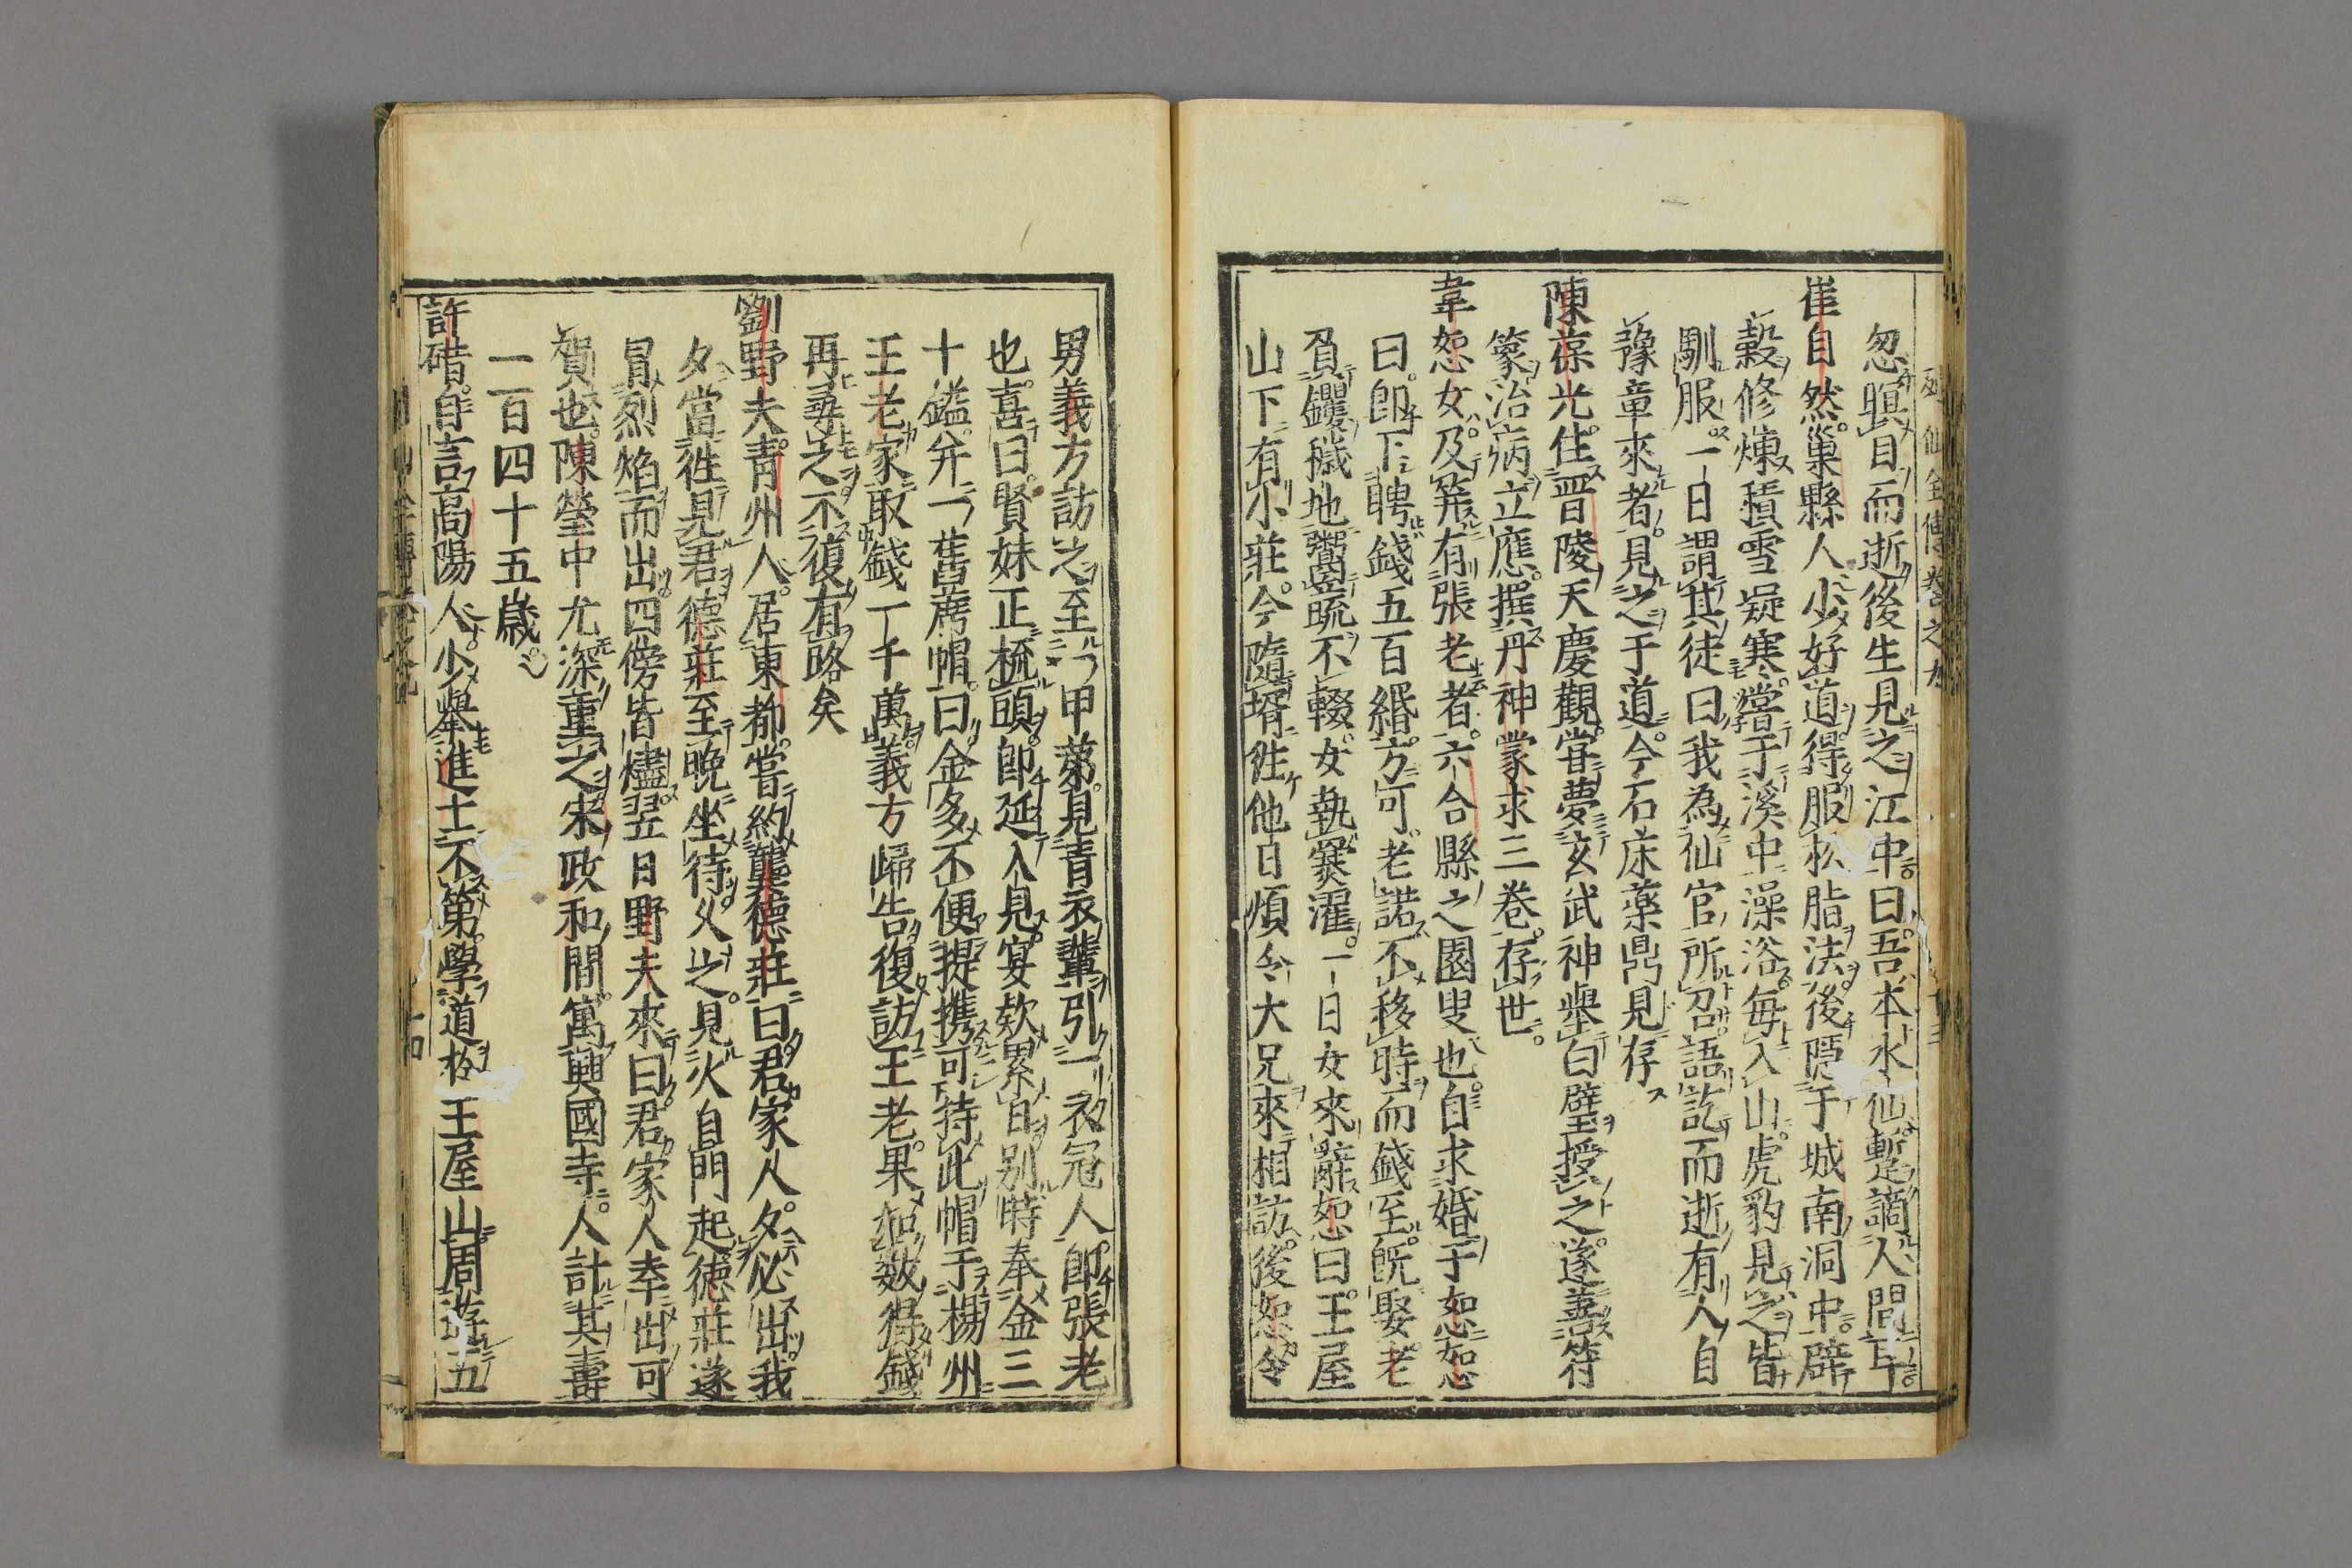 列仙全傳卷之九
忽瞑目而逝後生見之江中曰吾本水仙暫謫人間耳
崔自然巢縣人少好道得服松脂法後隱于城南洞中辟
穀修煉積雪凝寒嘗于溪中澡浴每入山虎豹見之皆
馴服一日謂其徒曰我為仙官所召語訖而逝有人自
豫章來者見之于道今石床藥鼎見存
陳葆光住晋陵天慶觀嘗夢玄武神垂白璧授之遂善符
篆治病立應撰丹神蒙求三巻存世
韋恕女及笄有張老者六合縣之園叟也自求婚于恕恕
曰即下聘錢五百緡方可老諾不移時而錢至既娶老
負钁穢地鬻蔬不輟女執爨濯一日女來辭恕曰王屋
山下有小莊今隨壻徃他日煩令大兄來相訪後恕令
男義方訪之至一甲第見青衣輩引一衣冠人即張老
也喜曰賢妹正梳頭即延入見宴欵累日别時奉金三
十鎰并一舊蓆帽曰金多不便提携可持此帽于楊州
王老家取錢一千萬義方歸告復訪王老果如數得錢
再尋之不復有路矣
劉野夫青州人居東都嘗約龔德莊曰君家人夕必出我
夕當徃見君德莊至晩坐待久之見火自門起德莊遂
冒烈焰而出四傍皆燼翌日野夫來曰君家人幸出可
賀也陳瑩中尤深重之宋政和間寓興國寺人計其壽
一百四十五歲
許碏自言高陽人少舉進士不第學道於王屋山周遊五